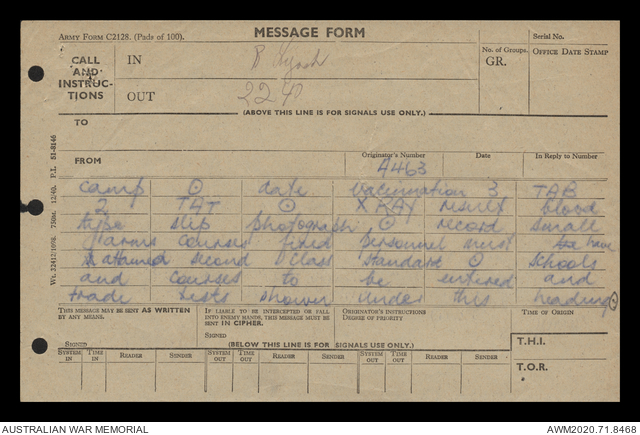 ARMY FORM C2128. (Pads of 100).
MESSAGE FORM
Serial No.
CALL AND INSTRUCTIONS
IN
No. of Groups.
GR.
OFFICE DATE STAMP
OUT
2240
(ABOVE THIS LINE IS FOR SIGNALS USE ONLY.)
TO
FROM
Originator's Number
Date
In Reply to Number
A463
camp ⊙ date vaccination 3 TAB
2 TAT ⊙ X RAY result blood
type slip photograph ⊙ record small
arms courses fired personnel must have
attained second class standard ⊙ schools
and courses to be entered and
trade tests shewer under this heading ⊙
Wt. 33412/1098. 750m. 12/40. P.I. 51-8146
THIS MESSAGE MAY BE SENT AS WRITTEN BY ANY MEANS.
IF LIABLE TO BE INTERCEPTED OR FALL INTO ENEMY HANDS, THIS MESSAGE MUST BE SENT IN CIPHER.
ORIGINATOR'S INSTRUCTIONS DEGREE OF PRIORITY
TIME OF ORIGIN
SIGNED
SIGNED
(BELOW THIS LINE IS FOR SIGNALS USE ONLY.)
T.H.I.
SYSTEM IN
TIME IN
READER
SENDER
SYSTEM OUT
TIME OUT
READER
SENDER
SYSTEM OUT
TIME OUT
READER
SENDER
T.O.R.
AUSTRALIAN WAR MEMORIAL
AWM2020.71.8468